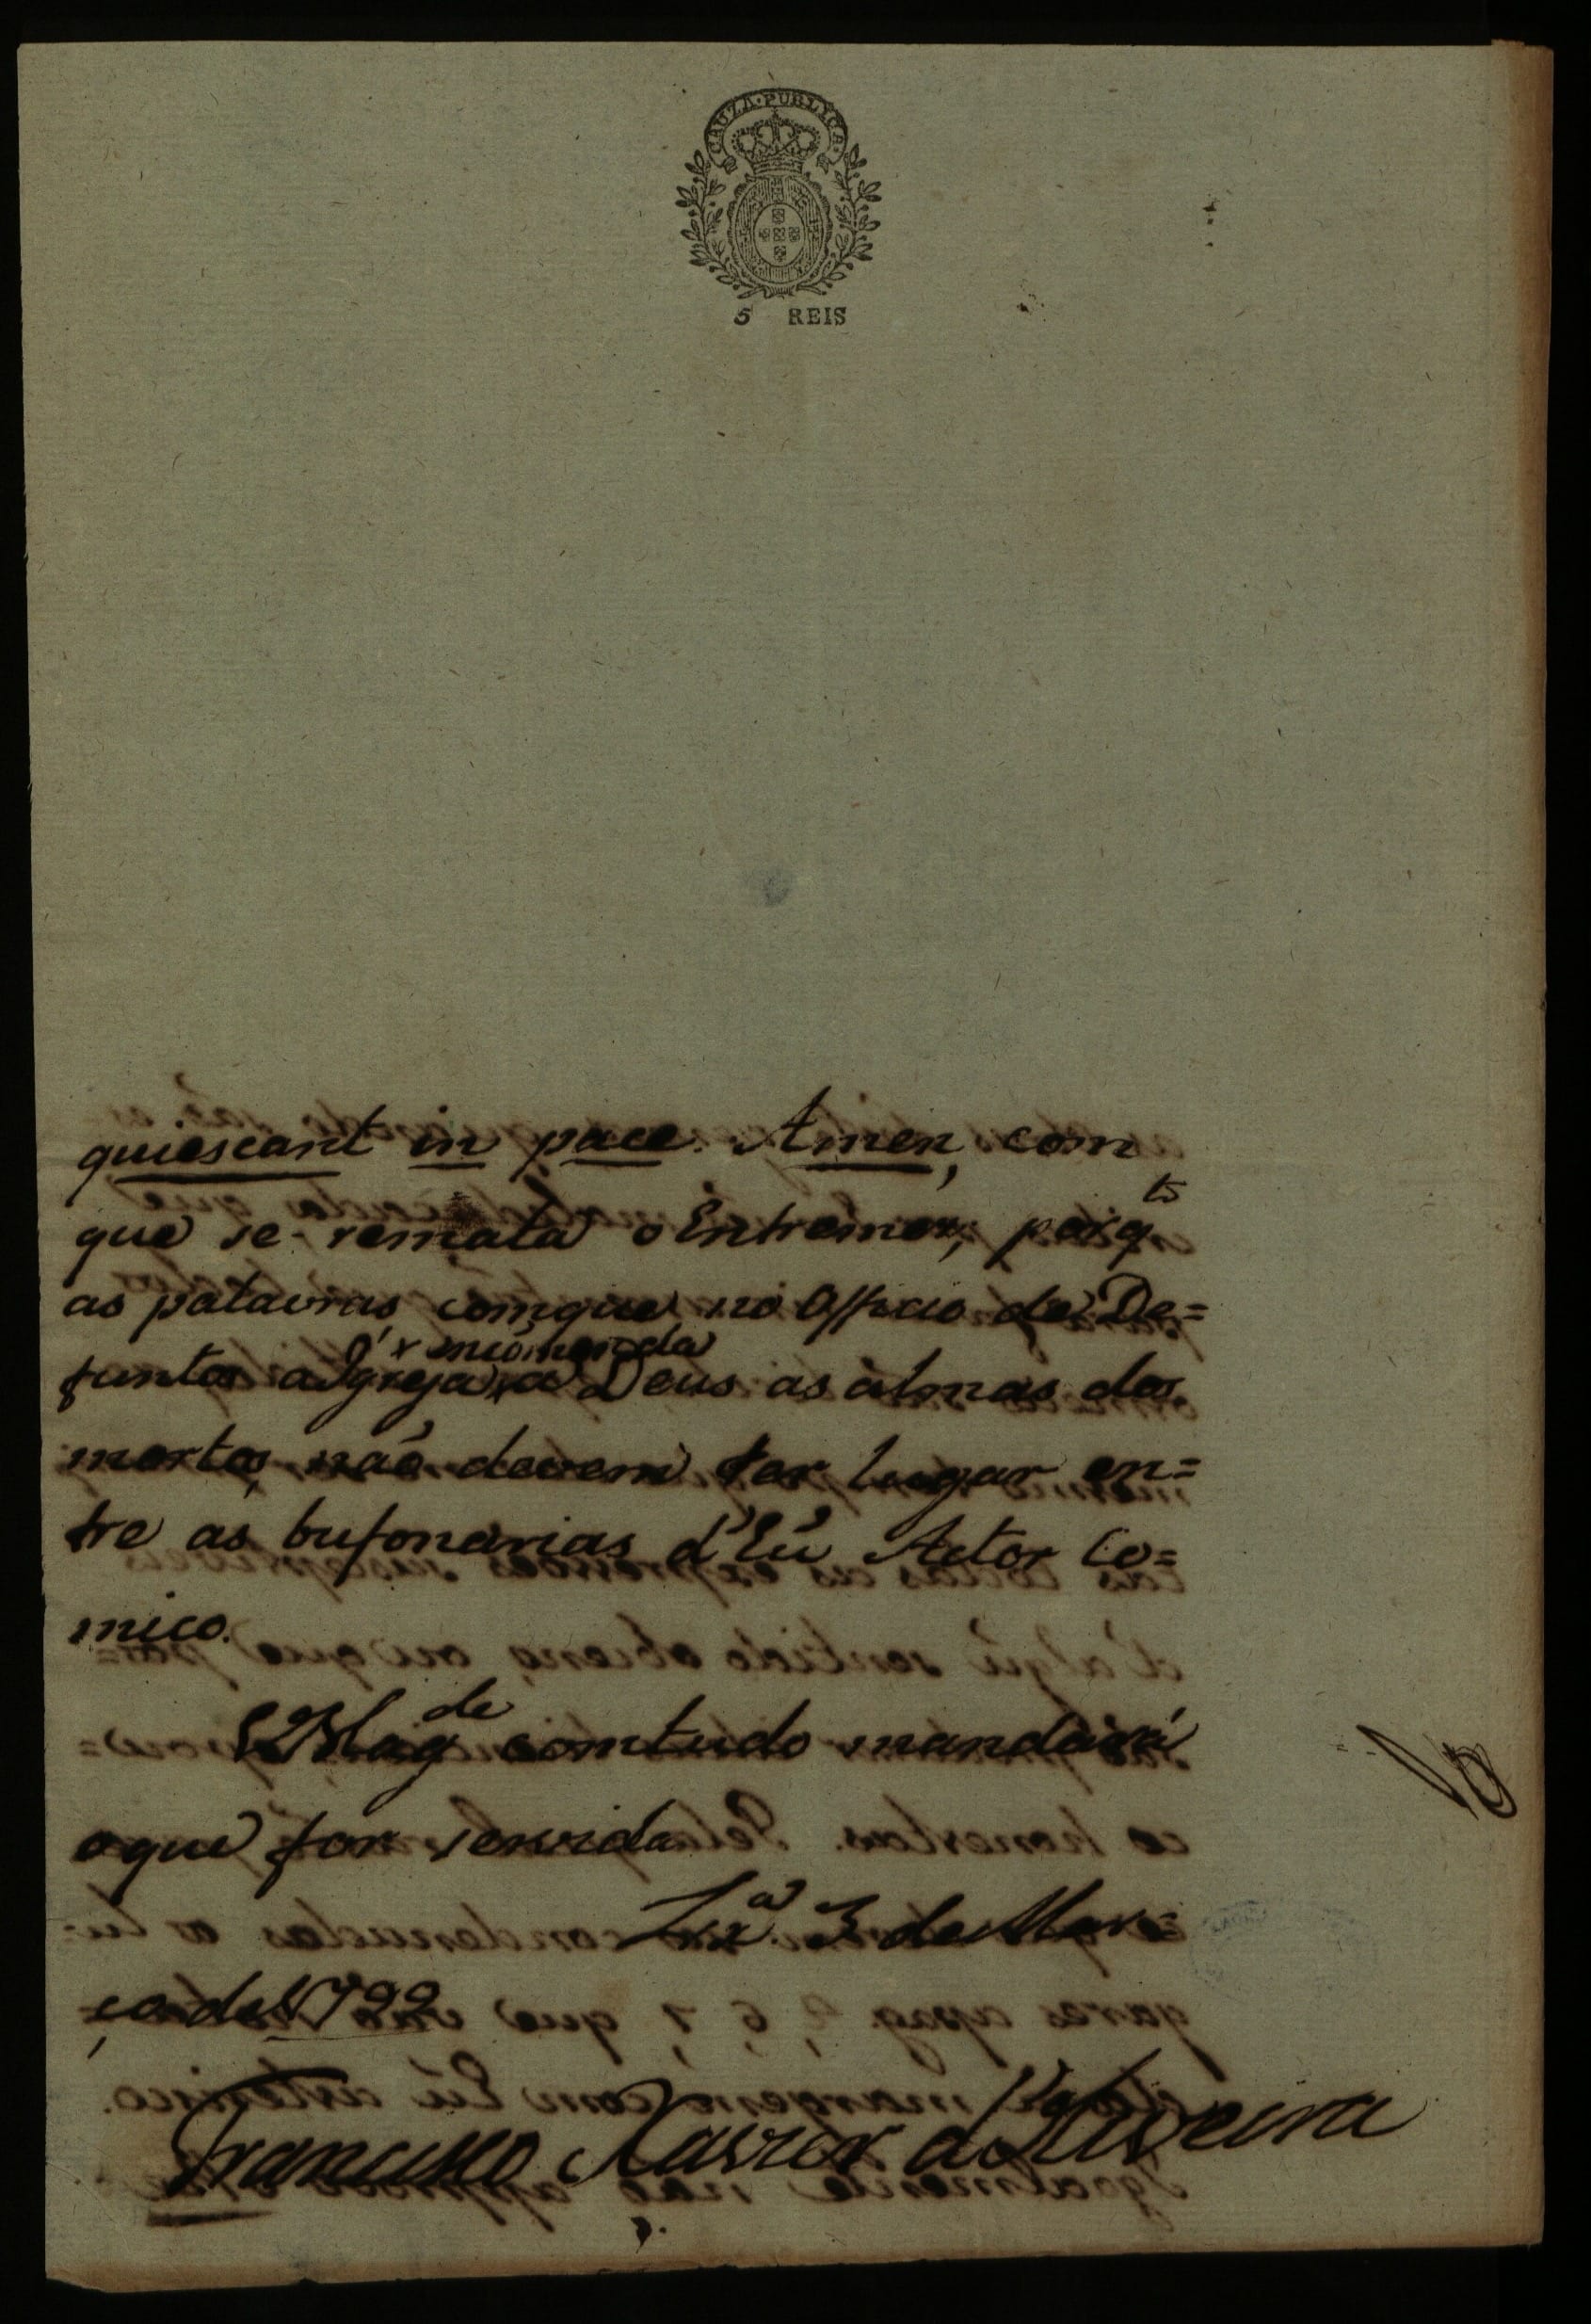 CAUZA·PUBLICA
5 REIS
quiescant in pace. Amen, com
que se remata o Entremez; poiq ts
as palavras, comque no Officio de De=
funtos a Igreja × a Deus as almas dos
× encómenda
mortos, naõ devem ter lugar en=
tre as bufonarias d'hũ Actor Co=
mico.
VMag.de comtudo mandará
oque for servida.
Lx.a 3 de Mar=
ço de 1799
Francisco Xavier d'Oliveira